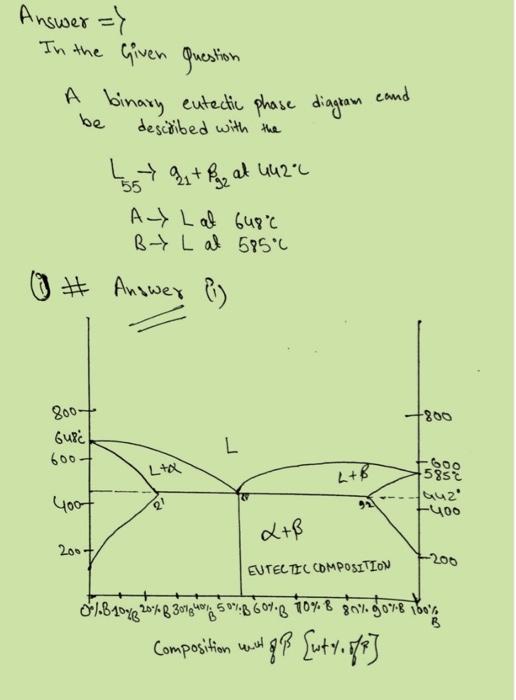 Answer ⇒
In the Given Question
A binary eutectic phase diagram cand
be described with the
L55 → α21 + β92 at 442°C
A → L at 648°C
B → L at 585°C
(i) # Answer (i)
800
648°C
600
400
200
L
L+α
L+β
21
92
α+β
EUTECTIC COMPOSITION
800
600
585°C
442°
400
200
0%B 10%B 20%B 30%B 40%B 50%B 60%B 70%B 80% 90%B 100%B
Composition of β [wt%